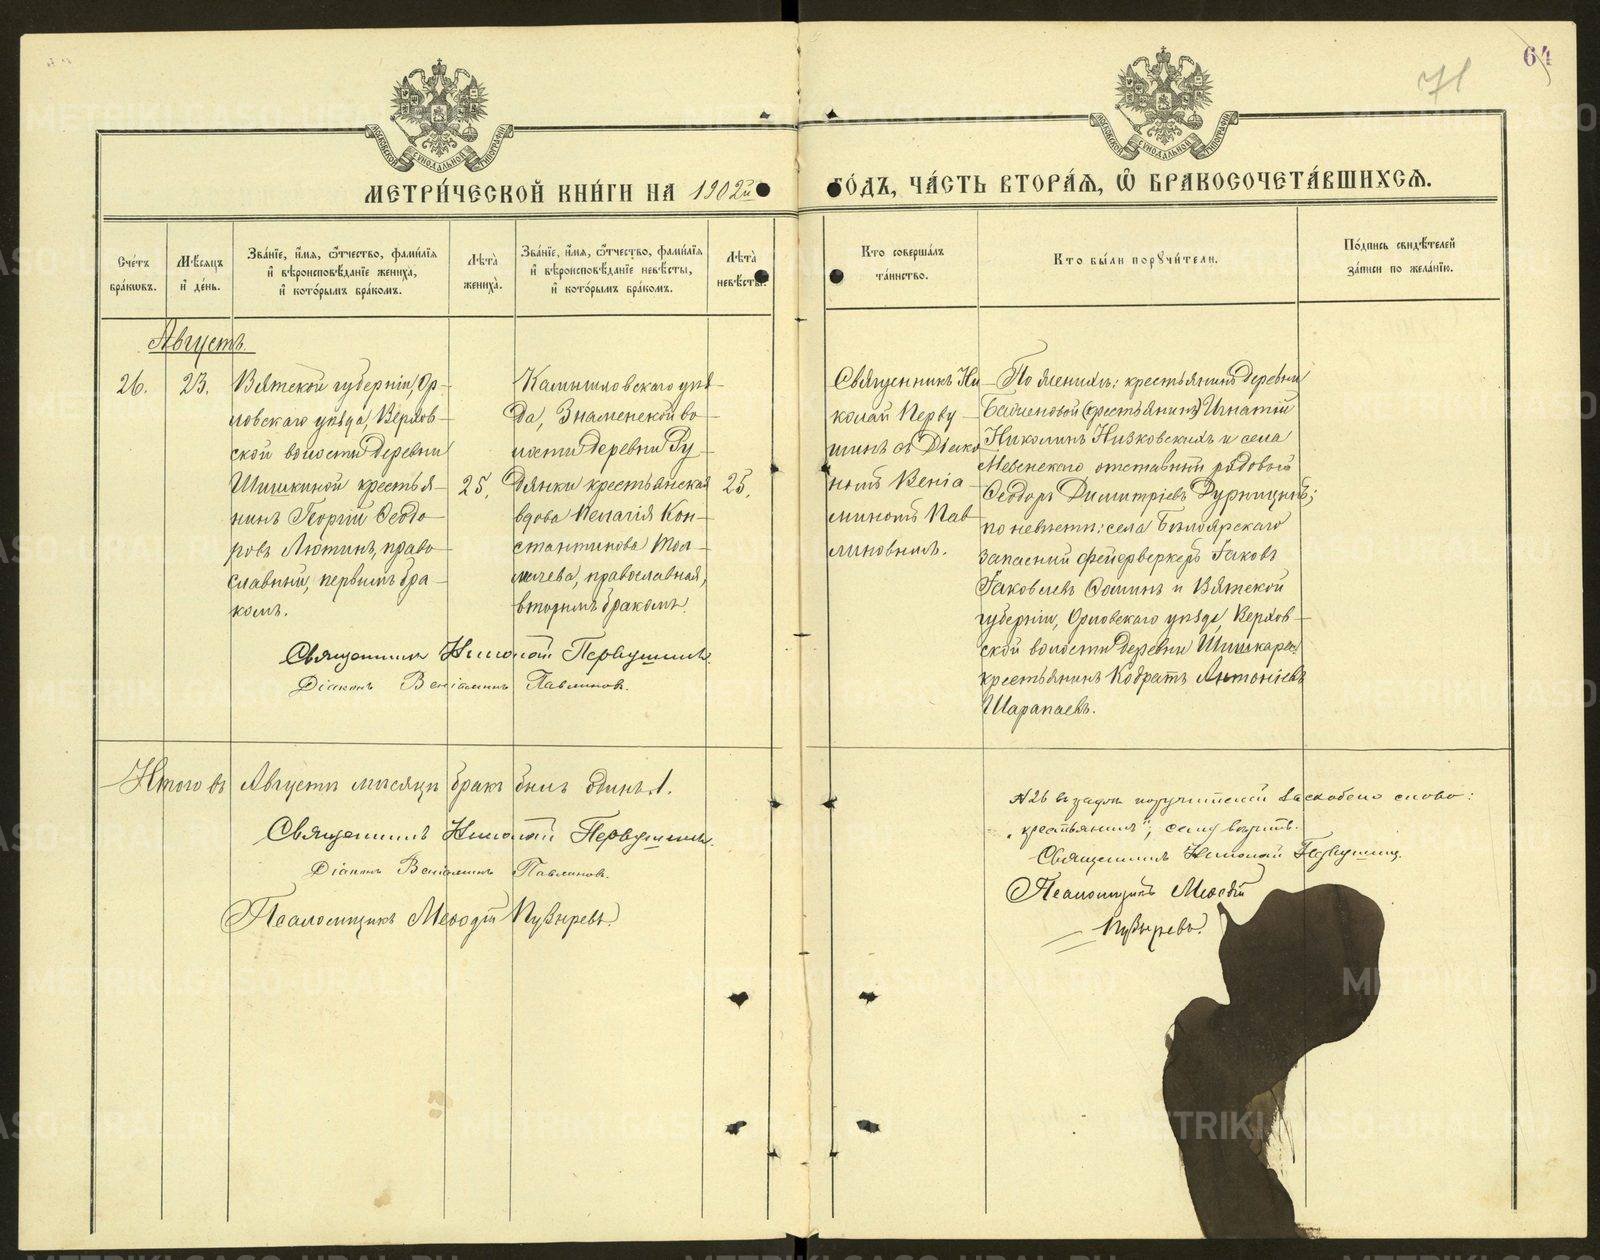 64
71
МОСКОВСКОЙ СУНОДАЛЬНОЙ ТИПОГРАФІИ
МОСКОВСКОЙ СУНОДАЛЬНОЙ ТИПОГРАФІИ
МЕТРИ́ЧЕСКОЙ КНИ́ГИ НА 1902й
ГО́ДЪ, ЧА́СТЬ ВТОРА́Я, Ѿ БРАКОСОЧЕТА́ВШИХСЯ.
Сче́тъ бра́кѡвъ.
Мѣ́сяцъ и҆ де́нь.
Зва́нїе, и҆́мя, ѻ҆́тчество, фами́лїя и҆ вѣроисповѣ́данїе жениха̀, и҆ кото́рымъ бра́комъ.
Лѣ́та жениха̀.
Зва́нїе, и҆́мя, ѻ҆́тчество, фами́лїя и҆ вѣроисповѣ́данїе невѣ́сты, и҆ кото́рымъ бра́комъ.
Лѣ́та невѣ́сты.
Кто̀ соверша́лъ та́инство.
Кто̀ бы́ли порꙋчи́тели.
По́дпись свидѣ́телей за́писи по жела́нїю.
Августъ.
26.
23.
Вятской губерніи, Ор-
ловскаго уѣзда, Верхов-
ской волости деревни
Шишкиной крестья-
нинъ Георгій Ѳеодо-
ровъ Лютинъ, право-
славный, первымъ бра-
комъ.
25.
Камышловскаго уѣз-
да, Знаменской во-
лости деревни Ру-
дянки крестьянская
вдова Пелагія Кон-
стантинова Тол-
мачева, православная,
вторымъ бракомъ.
25.
Священникъ Ни-
колай Перву-
шинъ съ Діако-
номъ Веніа-
миномъ Пав-
линовымъ.
По женихѣ: крестьянинъ деревни
(крестьянинъ) Игнатій
Николинъ Низковскихъ и села
отставный рядовой
Ѳеодоръ Димитріевъ
по невѣстѣ: села Бѣлоярскаго
запасный фейерверкеръ Іаковъ
Іаковлевъ Ѳоминъ и Вятской
губерніи, Орловскаго уѣзда, Верхов-
ской волости деревни
крестьянинъ Кодратъ Антоніевъ
Шарапаевъ.
Священникъ Николай Первушинъ.
Діаконъ Веніаминъ Павлиновъ.
Итого въ Августѣ мѣсяцѣ бракъ былъ одинъ 1.
Священникъ Николай Первушинъ.
Діаконъ Веніаминъ Павлиновъ.
Псаломщикъ Меѳодій Пузыревъ.
№ 26 въ графѣ поручителей заскоблено слово:
"крестьянинъ",
Священникъ Николай Первушинъ.
Псаломщикъ Меѳодій
Пузыревъ.
METRIKI.GASO-URAL.RU